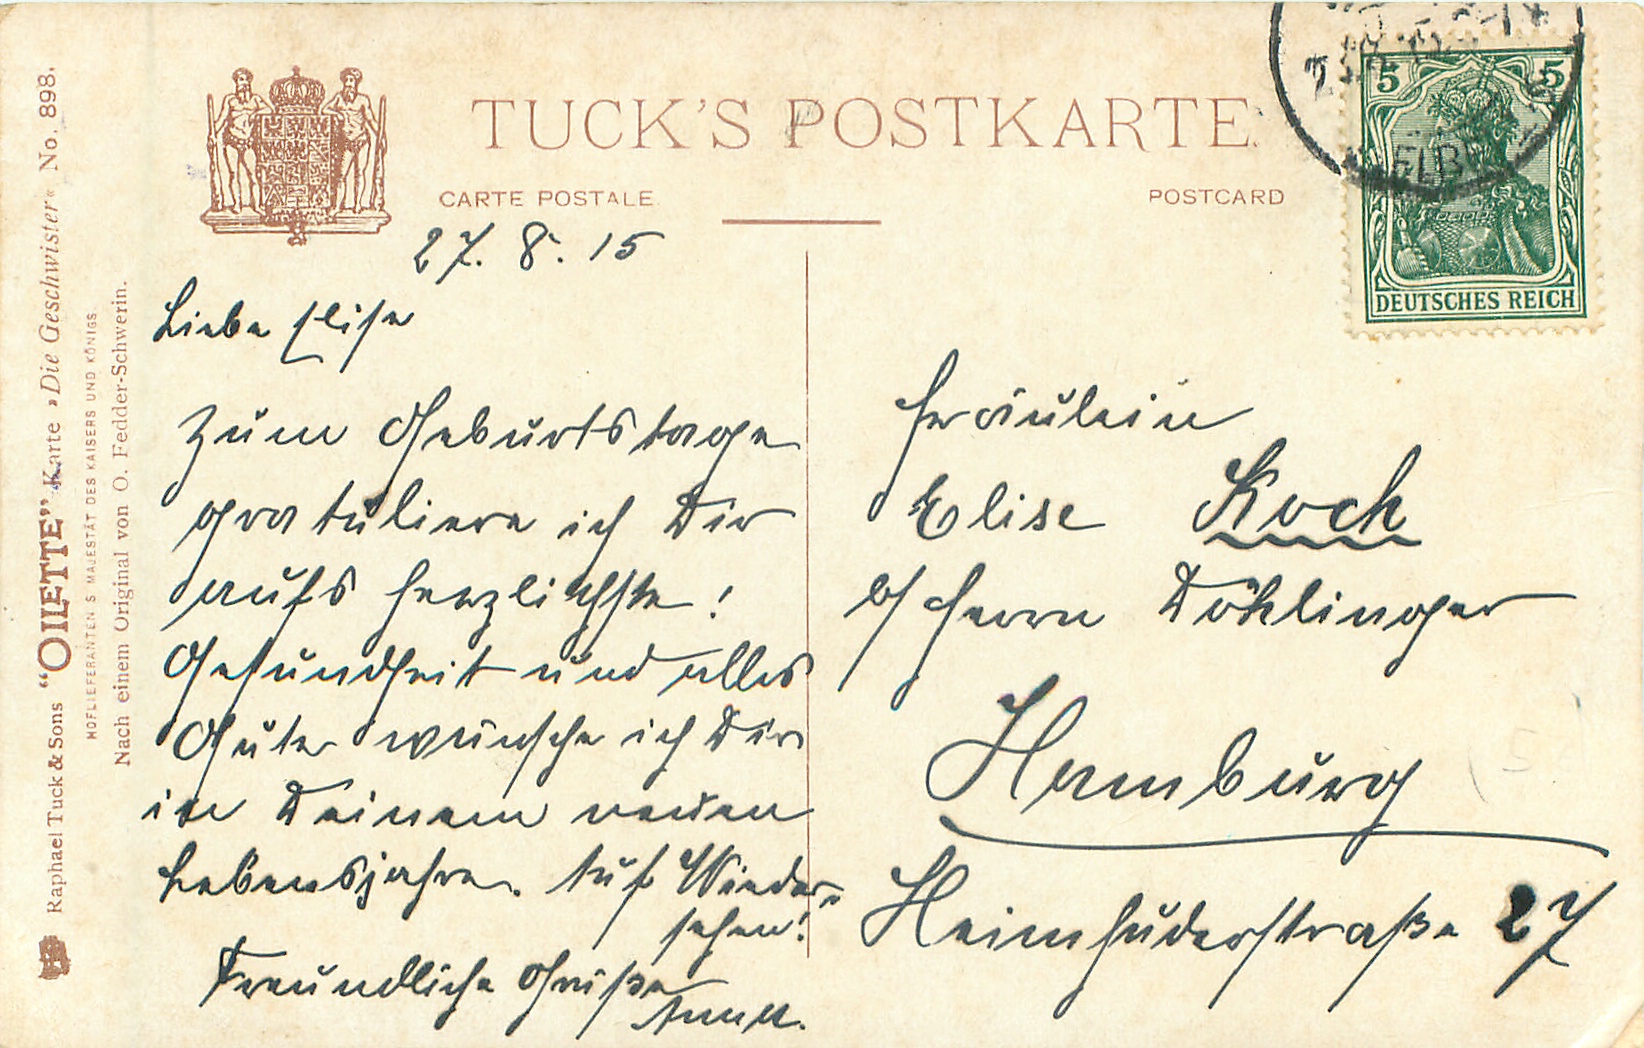 TUCK'S POSTKARTE.
CARTE POSTALE.
POSTCARD
5 5
DEUTSCHES REICH
ELB
Raphael Tuck & Sons "OILETTE" Karte »Die Geschwister« No. 898.
HOFLIEFERANTEN S MAJESTÄT DES KAISERS UND KÖNIGS
Nach einem Original von O. Fedder-Schwerin.
27. 8. 15
Liebe Elise
Zum Geburtstage
gratuliere ich Dir
aufs herzlichste!
Gesundheit und alles
Gute wünsche ich Dir
in Deinem neuen
Lebensjahre. Auf Wieder-
sehen!
Freundliche Grüße
Fräulein
Elise Koch
b/ Herrn Döhlinger
Hamburg
Heimhuderstraße 27